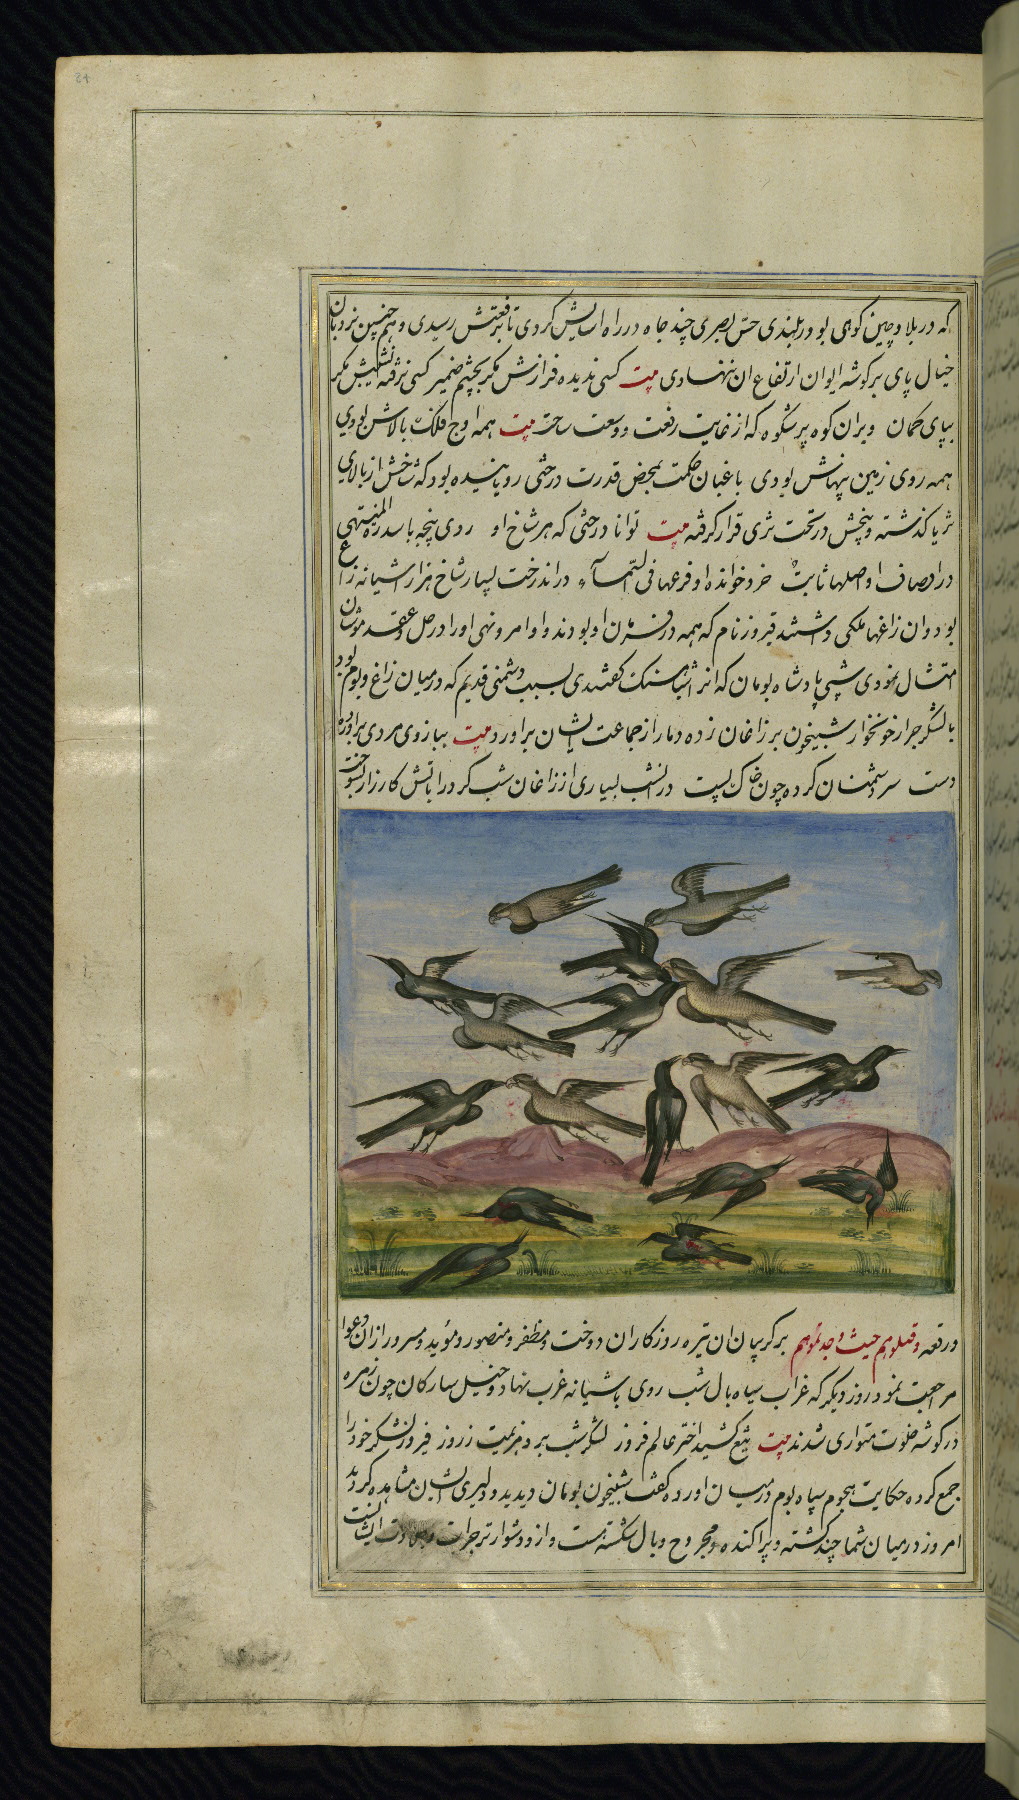 که در بلاد چین کوهی بود در بلندی حس بصری چند جا در راه اسایش کردی تا بر قعتش رسیدی و هم چنین نردبان
خیال پای بر کوشه ایوان ارتفاع ان ننهادی بیت کسی ندیده فرازش مکر بچشم ضمیر کسی نرفته نشیبش مکر
بپای کمان وبران کوه پرشکوه که از غایت رفعت و وسعت ساحت بیت همه اوج افلاک بالاش بودی
همه روی زمین پهناش بودی باغبان حکمت بمحض قدرت درختی رویانیده بود که شاخش از بالای
ثریا کذشته و بیخش در تحت ثری قرار کرفته بیت توانا درختی که هر شاخ او زدی پنجه با سدرة المنتهی
در اوصاف او اصلها ثابت خرد خوانده او فرعها فی السماء در اندرخت بسیار شاخ هزار اشیانه زاغ
بود و ان زاغها ملکی داشتند فیروز نام که همه در فرمان او بودند و اوامر و نهی او را در حل و عقد
امتثال نمودی شبی پادشاه بومان که انر شباهنک کفتندی بسبب دشمنی قدیم که در میان زاغ و بوم بود
با لشکر جرار خونخوار شبیخون بر زاغان زده دمار از جماعت ایشان براورد بیت ببازوی مردی براورده
دست سر دشمنان کرده چون خاک پست در انشب بسیاری از زاغان شب کرد را باتش کارزار بسوخت
و رقعه و قتلوهم حیث وجدتموهم بر کریبان ان تیره روزکاران دوخت و مظفر و منصور و مؤید و مسرور از ان دعوا
مراجعت نمود روز دیکر که غراب سیاه بال شب روی باشیانه غرب نهاد و خیل ستارکان چون زمره
در کوشه خلوت متواری شدند بیت تیغ کشید اختر عالم فروز لشکر شب برد هزیمت ز روز فیروز لشکر خود را
جمع کرده حکایت هجوم سپاه بوم در میان اورده کفت شبیخون بومان دیدید و دلیری ایشان مشاهده کردید
امروز در میان شما چند کشته و پراکنده و مجروح و بال شکسته است و از و دشوارتر جرات و ایشانست